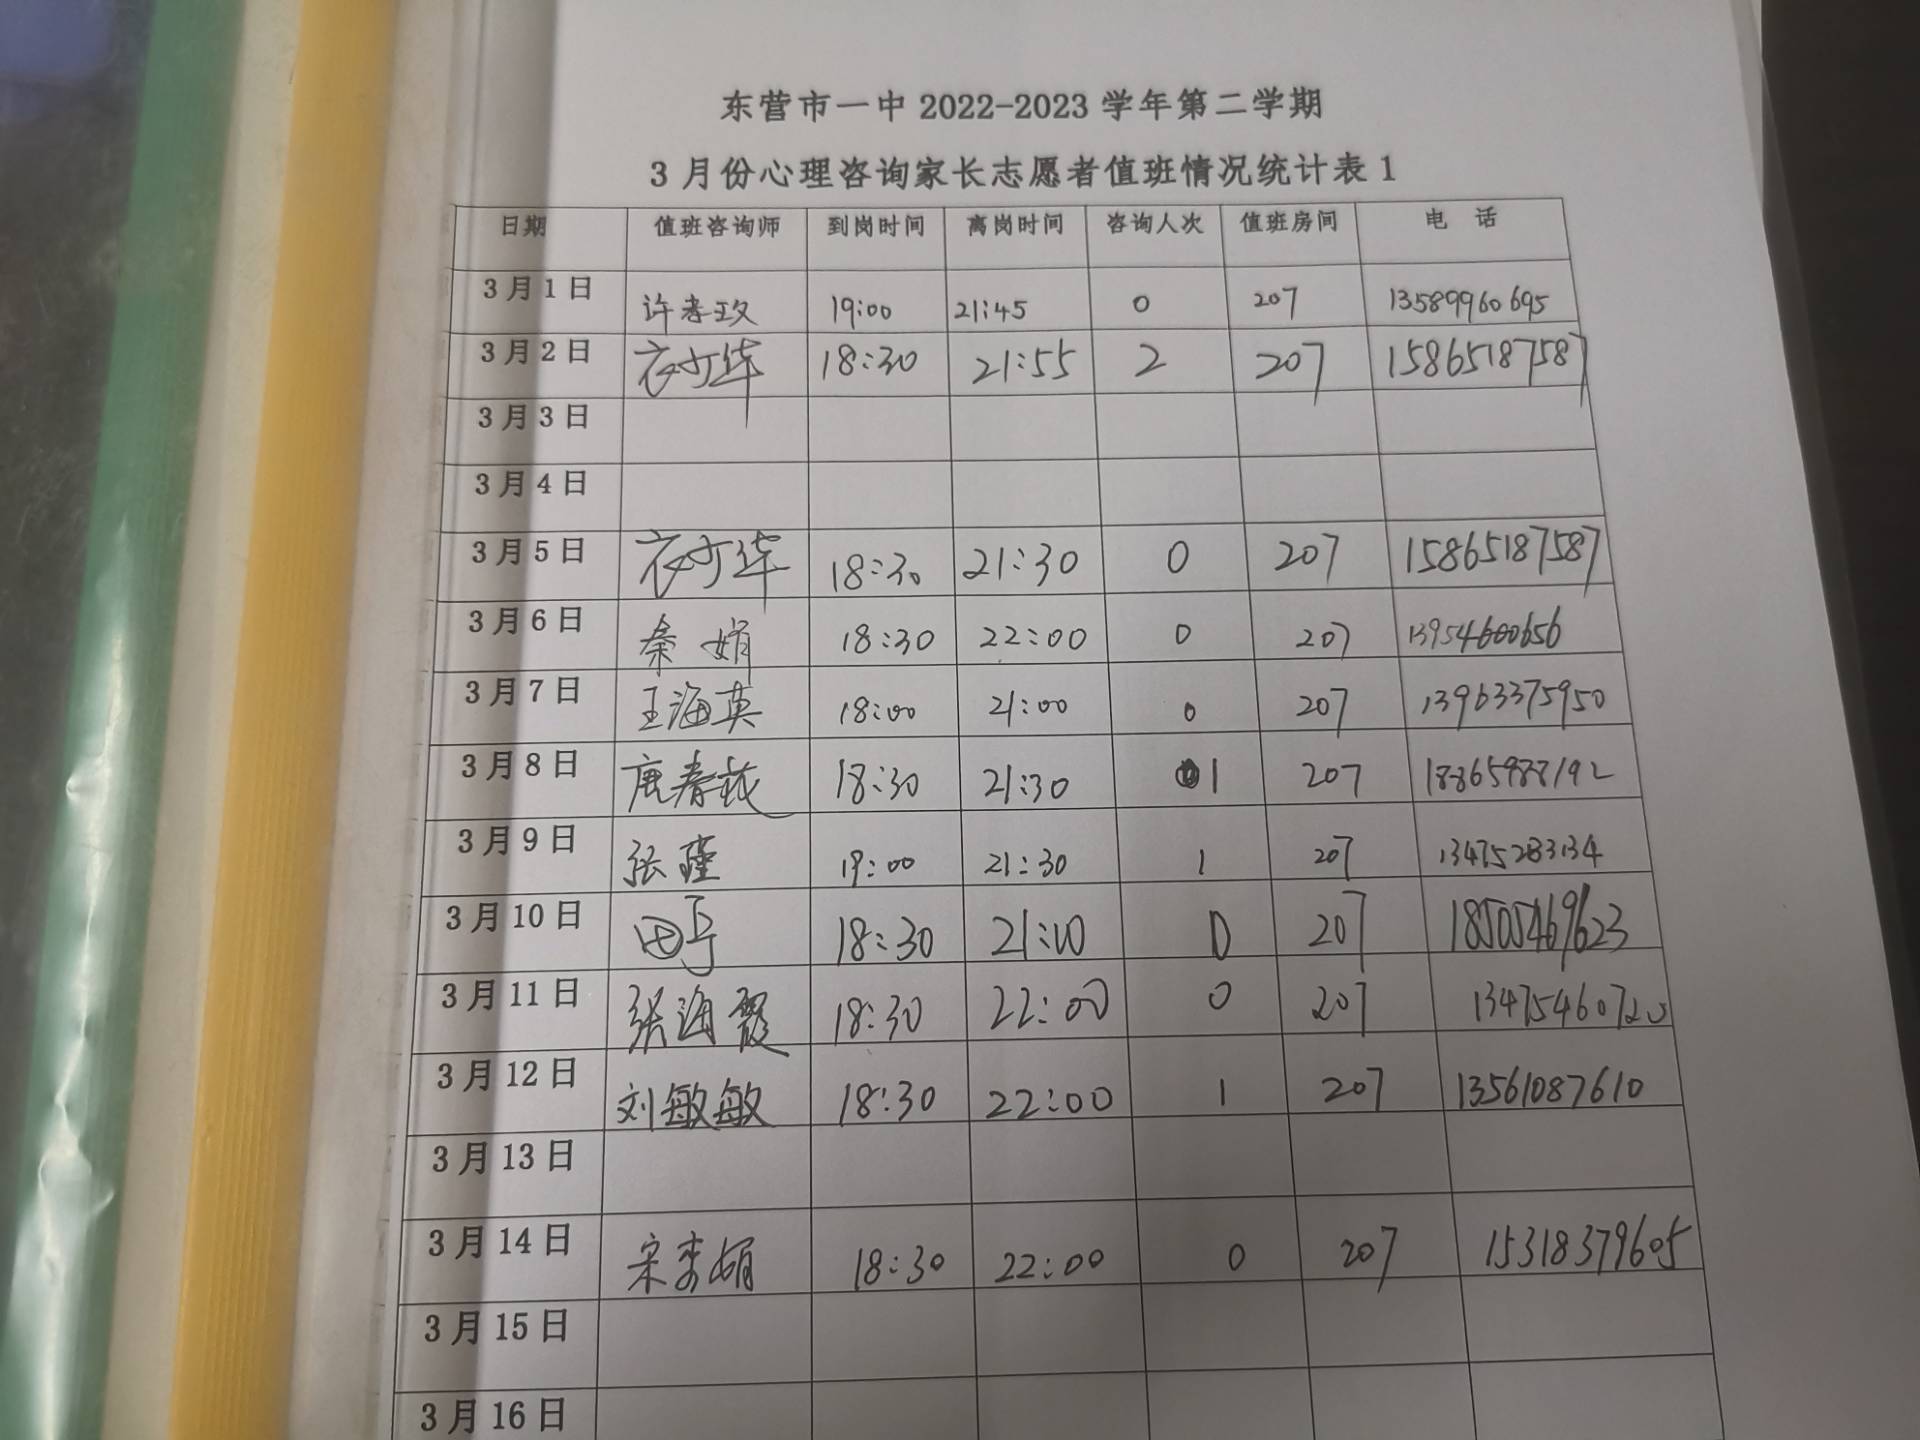 东营市一中 2022-2023 学年第二学期
3 月份心理咨询家长志愿者值班情况统计表 1
日期 值班咨询师 到岗时间 离岗时间 咨询人次 值班房间 电 话
3 月 1 日 许孝玫 19:00 21:45 0 207 13589960695
3 月 2 日 18:30 21:55 2 207 15865187587
3 月 3 日
3 月 4 日
3 月 5 日 18:30 21:30 0 207 15865187587
3 月 6 日 秦娟 18:30 22:00 0 207 13954600656
3 月 7 日 王海英 18:00 21:00 0 207 13963375950
3 月 8 日 唐春 18:30 21:30 1 207 18865988192
3 月 9 日 张瑾 19:00 21:30 1 207 13475283134
3 月 10 日 18:30 21:00 0 207 18505469623
3 月 11 日 张海霞 18:30 22:00 0 207 13475460720
3 月 12 日 刘敏敏 18:30 22:00 1 207 13561087610
3 月 13 日
3 月 14 日 宋娟 18:30 22:00 0 207 15318379605
3 月 15 日
3 月 16 日